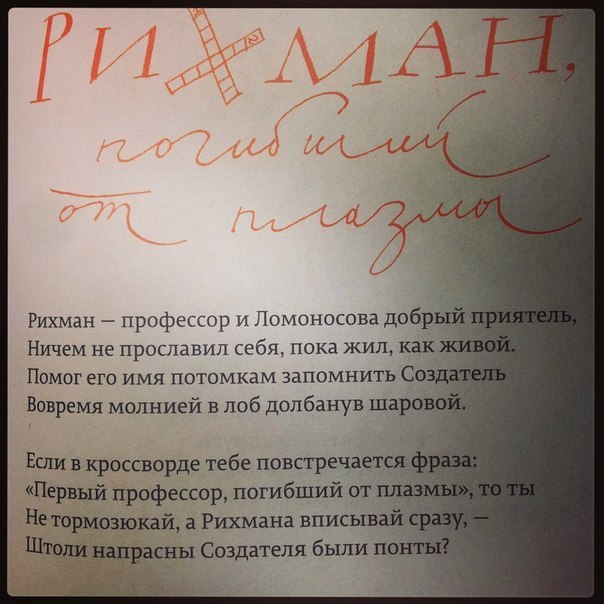 РИХМАН,
погибший
от плазмы
Рихман — профессор и Ломоносова добрый приятель,
Ничем не прославил себя, пока жил, как живой.
Помог его имя потомкам запомнить Создатель
Вовремя молнией в лоб долбанув шаровой.
Если в кроссворде тебе повстречается фраза:
«Первый профессор, погибший от плазмы», то ты
Не тормозюкай, а Рихмана вписывай сразу, —
Штоли напрасны Создателя были понты?